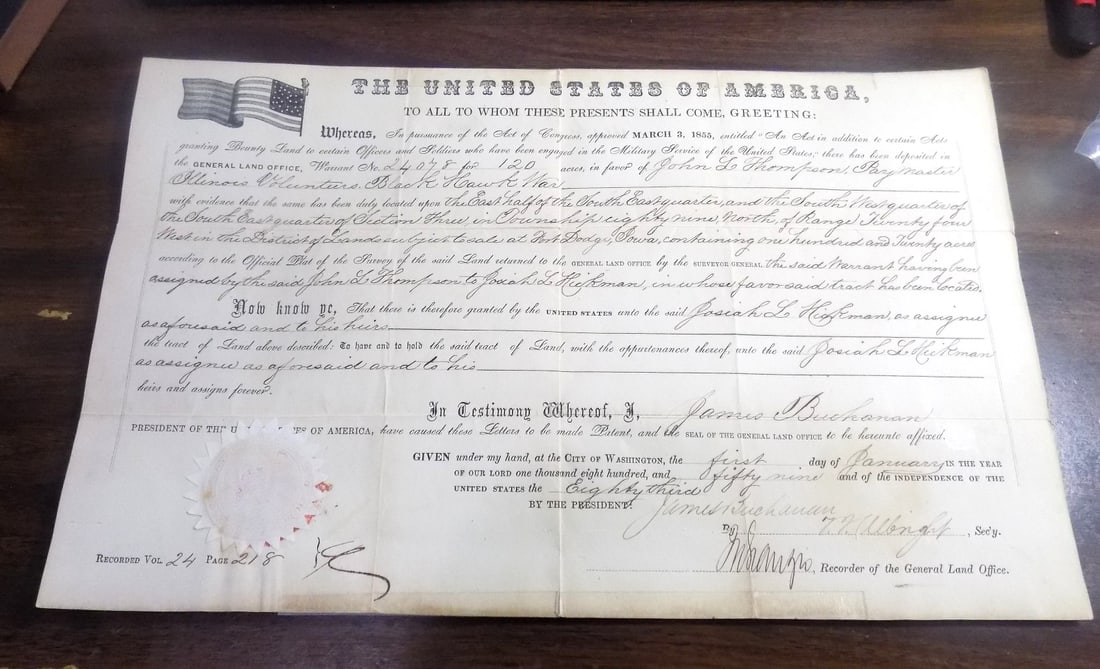 THE UNITED STATES OF AMERICA,
TO ALL TO WHOM THESE PRESENTS SHALL COME, GREETING:
Whereas, In pursuance of the Act of Congress, approved MARCH 3, 1855, entitled "An Act in addition to certain Acts
granting Bounty Land to certain Officers and Soldiers who have been engaged in the Military Service of the United States," there has been deposited in
the GENERAL LAND OFFICE, Warrant No. 24078 for 120 acres, in favor of John L Thompson, Paymaster
Illinois Volunteers Black Hawk War
with evidence that the same has been duly located upon the East half of the South East quarter, and the South West quarter of
the South East quarter of Section Three, in Township eighty nine, North, of Range Twenty four
West in the District of Lands subject to sale at Fort Dodge, Iowa, containing one hundred and Twenty acres
according to the Official Plat of the Survey of the said Land returned to the GENERAL LAND OFFICE by the SURVEYOR GENERAL the said Warrant having been
assigned by the said John L Thompson to Josiah L Hickman, in whose favor said tract has been located.
Now know ye, That there is therefore granted by the UNITED STATES unto the said Josiah L Hickman, as assignee
as aforesaid and to his heirs
the tract of Land above described: To have and to hold the said tract of Land, with the appurtenances thereof, unto the said Josiah L Hickman
as assignee as aforesaid and to his
heirs and assigns forever.
In Testimony Whereof, I, James Buchanan
PRESIDENT OF THE UNITED STATES OF AMERICA, have caused these Letters to be made Patent, and the SEAL OF THE GENERAL LAND OFFICE to be hereunto affixed.
GIVEN under my hand, at the CITY OF WASHINGTON, the first day of January IN THE YEAR
OF OUR LORD one thousand eight hundred, and fifty nine and of the INDEPENDENCE OF THE
UNITED STATES the Eighty third
BY THE PRESIDENT: James Buchanan
By Albright, Sec'y.
RECORDED VOL. 24 PAGE 218
, Recorder of the General Land Office.